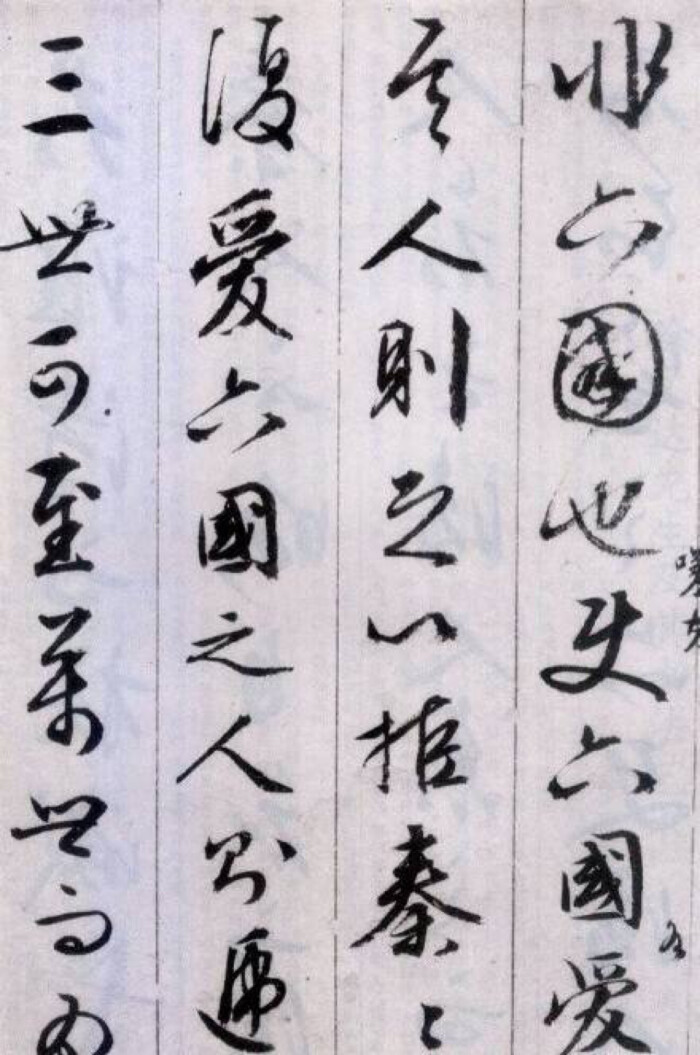 嗟夫
各
非六國也使六國愛
其人則足以拒秦〻
復愛六國之人則遞
三世可至萬世而為